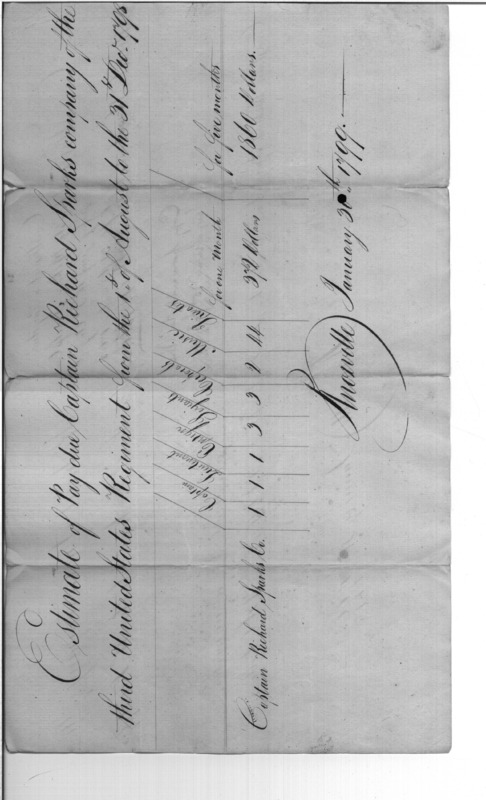 Estimate of Pay due Captain Richard Sparks company of the
third United States Regiment from the 1st of August to the 31st Decr. 1798
Captain Lieutenant Ensign Serjeants Corporals Music Privates for one Month for five months
Captain Richard Sparks Co. 1 1 1 3 3 2 44 372 dollars 1860 dollars.
Knoxville January 30th 1799.